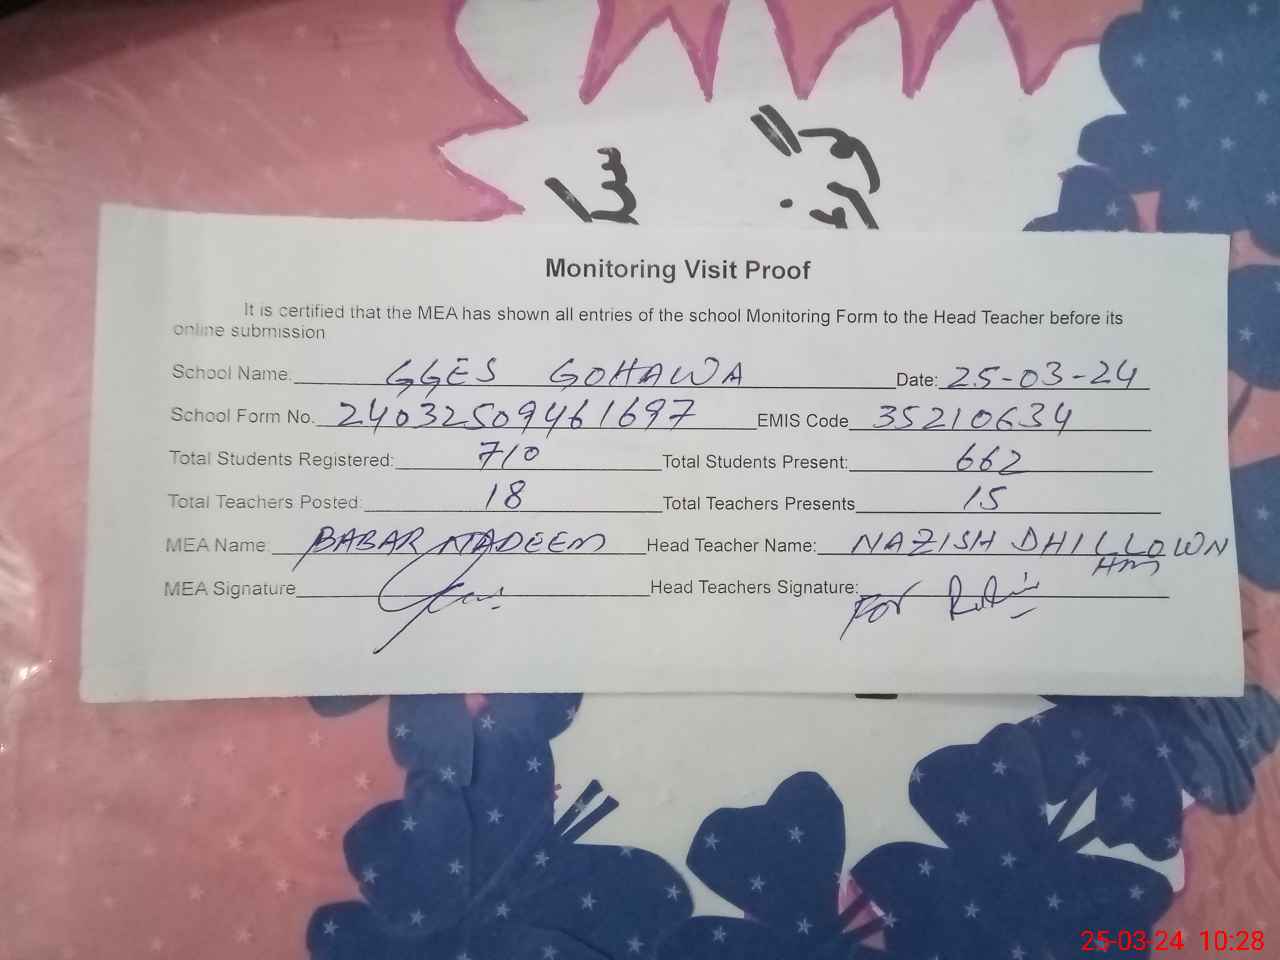 Monitoring Visit Proof
It is certified that the MEA has shown all entries of the school Monitoring Form to the Head Teacher before its
online submission
School Name. GGES GOHAWA Date: 25-03-24
School Form No. 24032509461697 EMIS Code 35210634
Total Students Registered: 710 Total Students Present: 662
Total Teachers Posted: 18 Total Teachers Presents 15
MEA Name: BABAR NADEEM Head Teacher Name: NAZISH DHILLOWN
HM
MEA Signature Head Teachers Signature: For
25-03-24 10:28